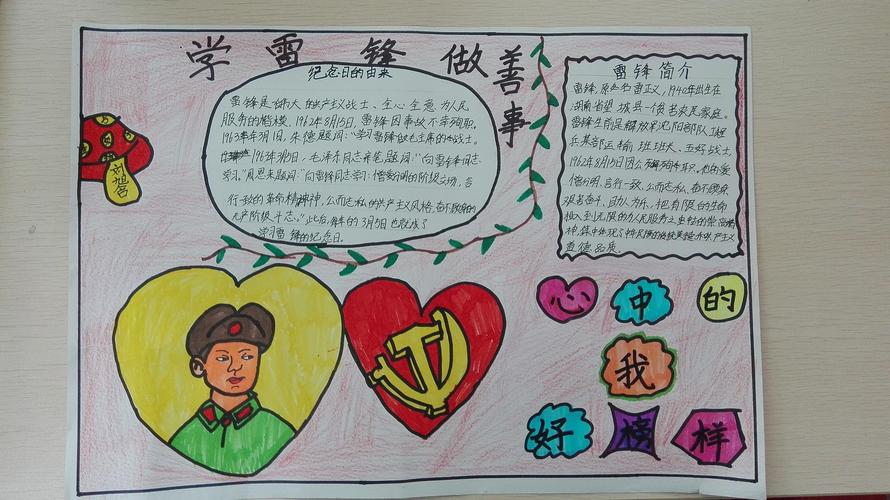 学雷锋做善事
纪念日的由来
雷锋是伟大的共产主义战士、全心全意为人民
服务的楷模。1962年8月15日,雷锋因事故不幸殉职。
1963年3月1日,朱德题词:"学习雷锋做毛主席的好战士。
1963年3月5日,毛泽东同志亲笔题词:"向雷锋同志
学习。"周恩来题词:"向雷锋同志学习:憎爱分明的阶级立场,言
行一致的革命精神,公而忘私的共产主义风格,奋不顾身的
无产阶级斗志。"此后,每年的3月5日也就成了
学习雷锋的纪念日。
雷锋简介
雷锋,原名雷正义,1940年出生在
湖南省望城县一个贫农民家庭。
雷锋生前是解放军沈阳部队工程
兵某部运输班班长、五好战士
1962年8月15日因公殉职。他的爱
憎分明、言行一致、公而忘私、奋不顾身
艰苦奋斗、助人为乐,把有限的生命
投入到无限的为人民服务之中去的崇高精
神,集中体现了
道德品质
刘旭
心中的
我
好榜样